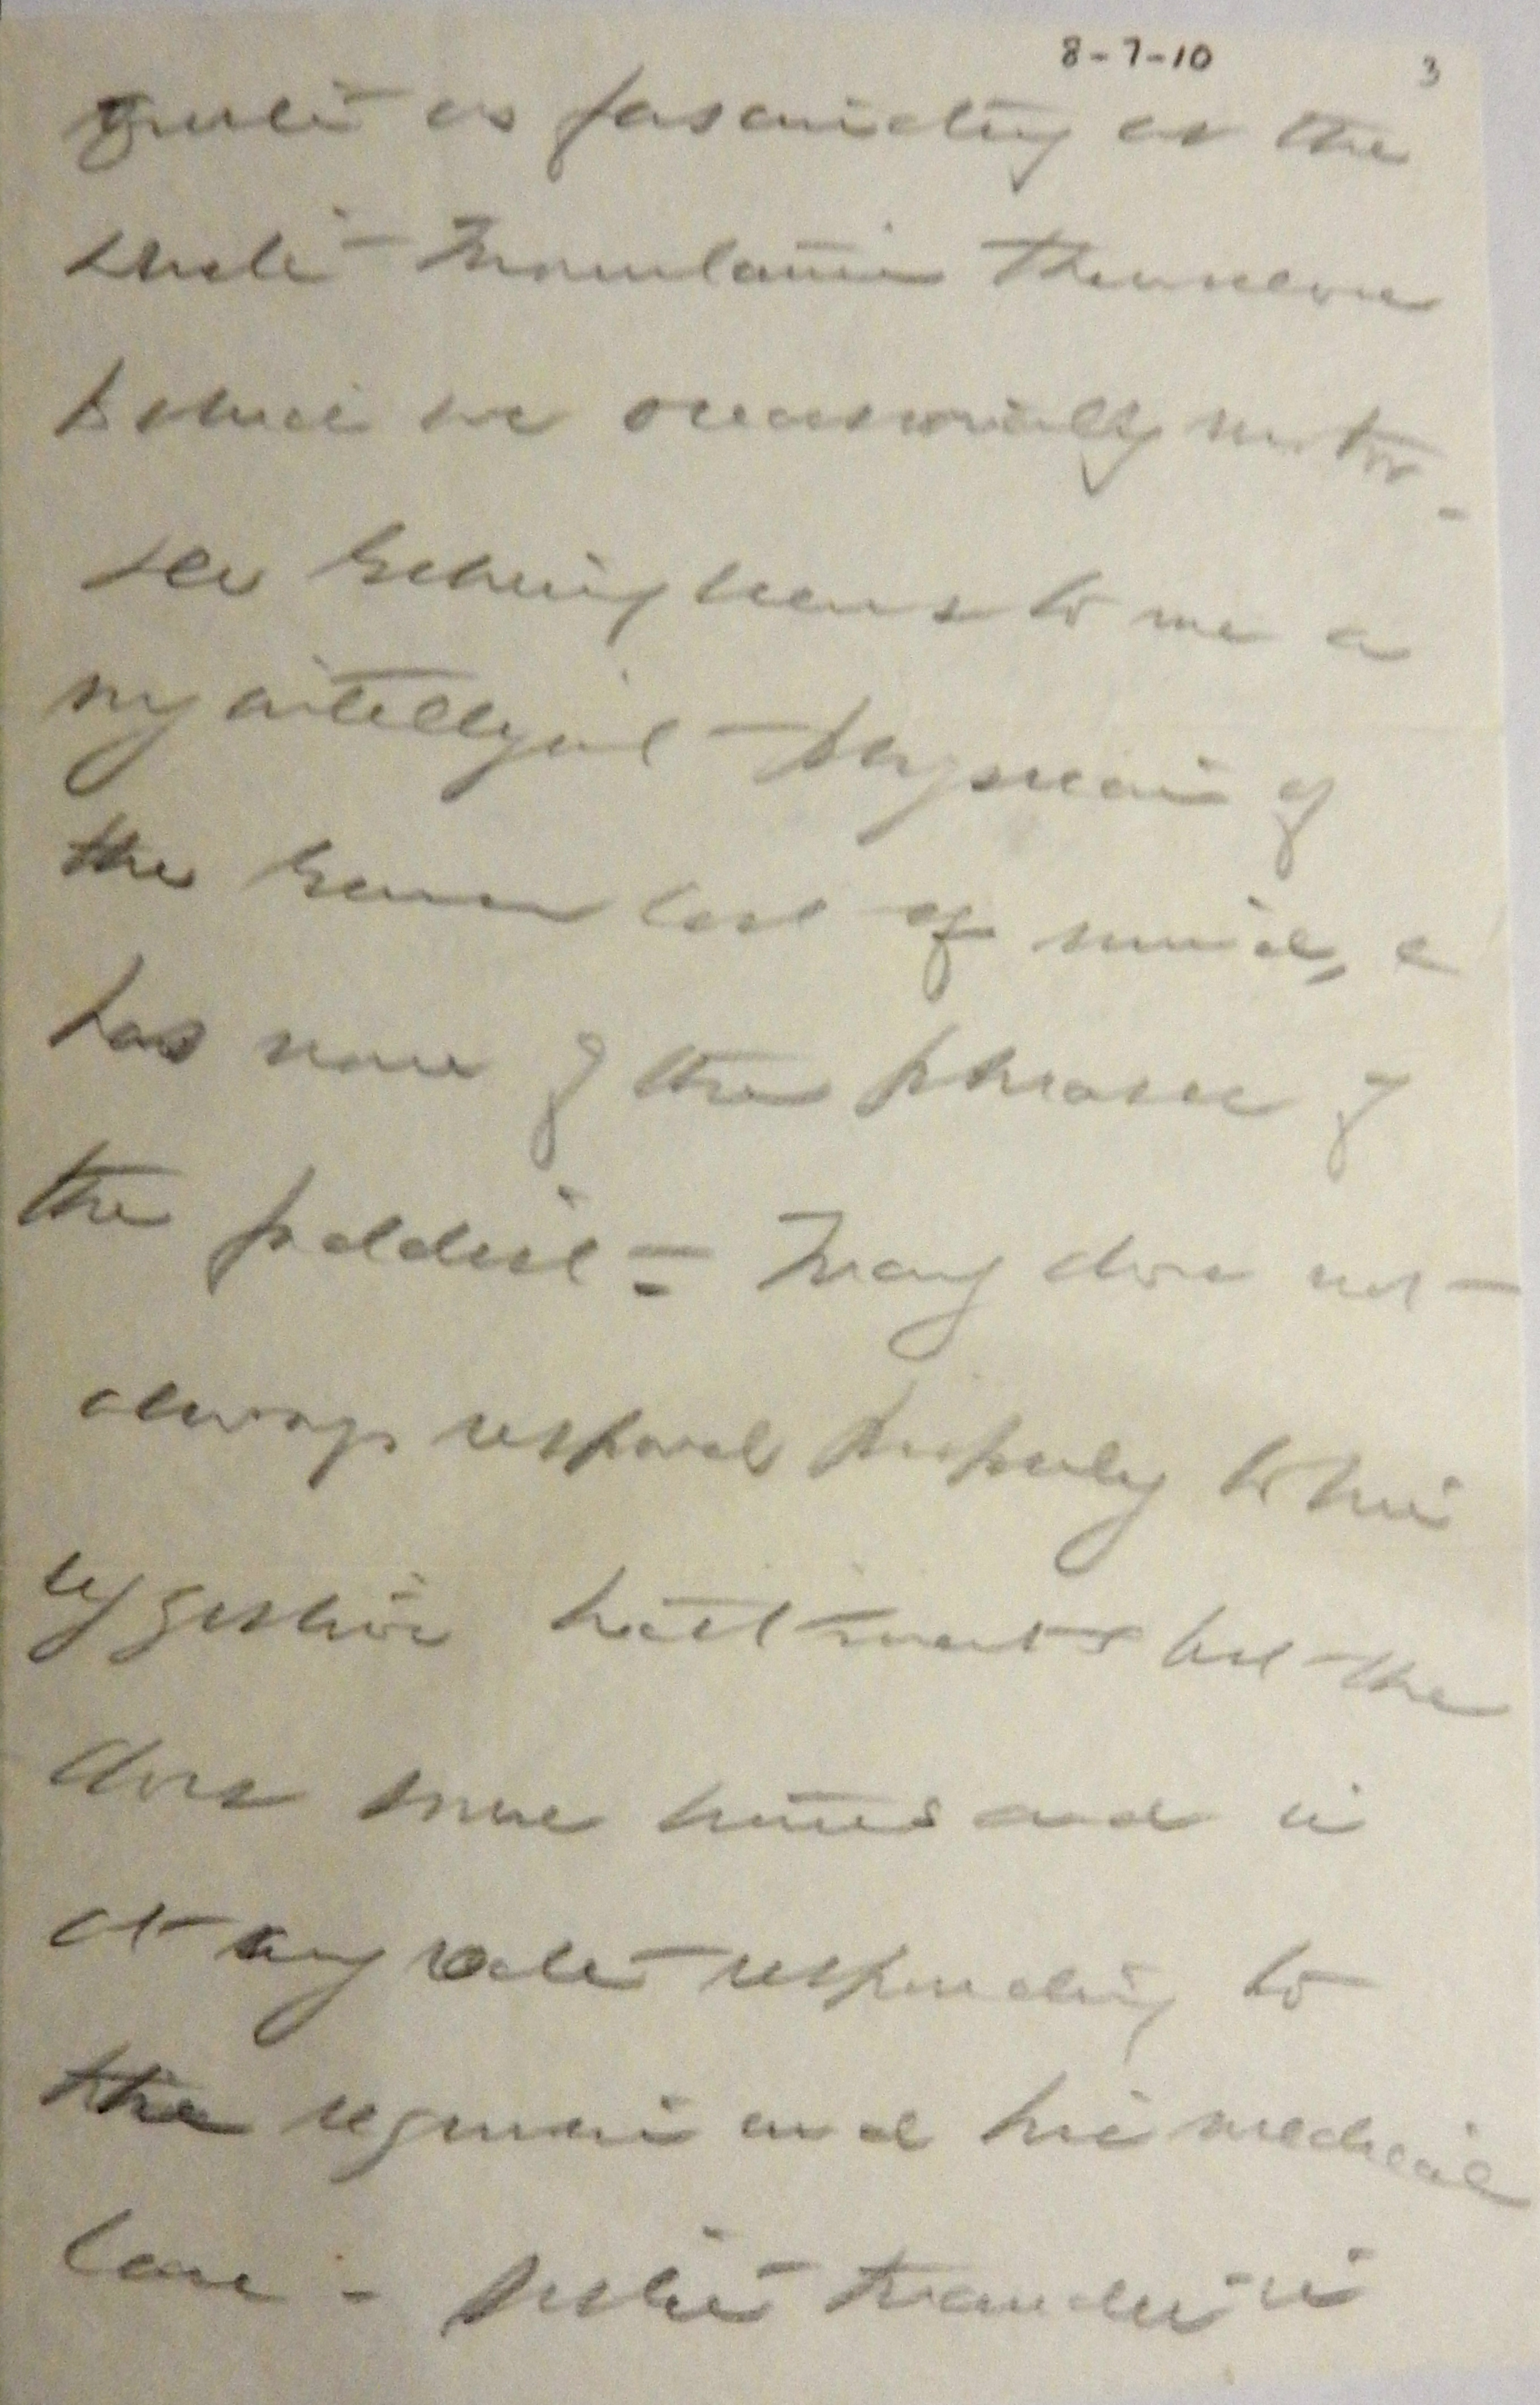 8-7-10 3
quite as fascinating as the
White Mountains themselves
to which we occasionally motor -
seems to me a
very intelligent physician of
the cast of mind, &
has none of the phrases of
the faddist = Mary does not
always respond properly to his
suggestive treatments but she
does some times and is
at any rate responding to
the regimen and his medical
care -